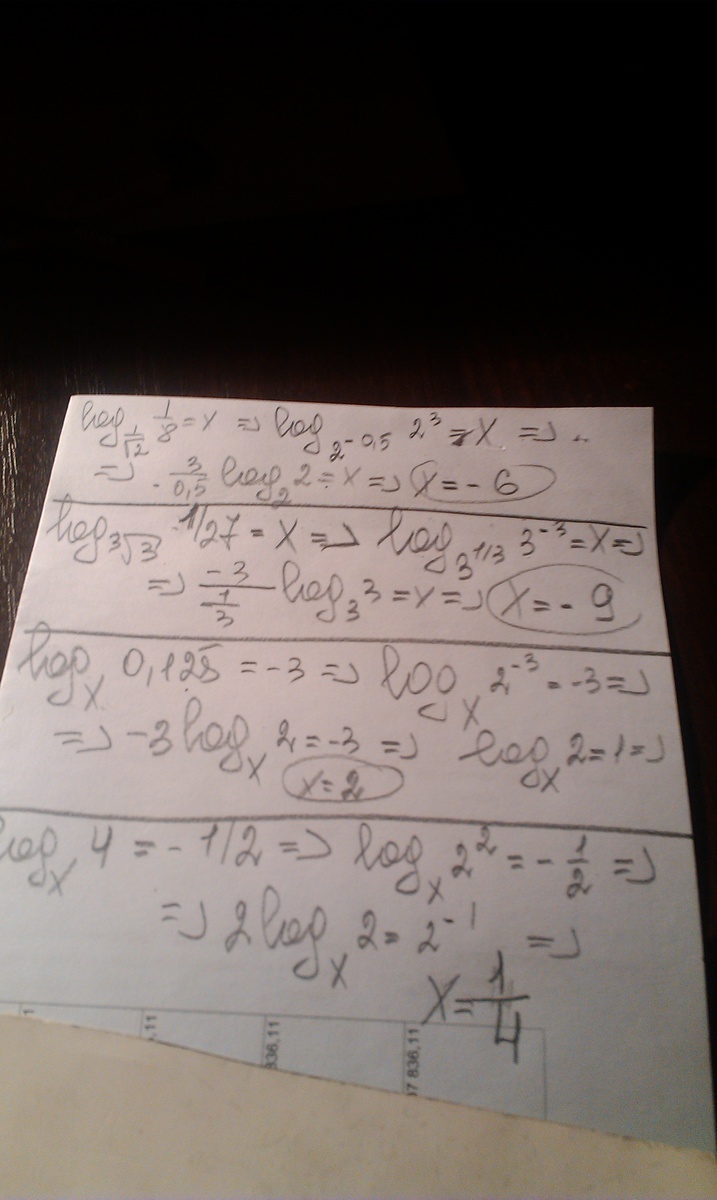 log_{1/√2} 1/8 = x => log_{2^{-0,5}} 2^3 = x =>
=> -3/0,5 log_2 2 = x => x = -6
log_{3√3} 1/27 = x => log_{3^{1/3}} 3^{-3} = x =>
=> -3/(1/3) log_3 3 = x => x = -9
log_x 0,125 = -3 => log_x 2^{-3} = -3 =>
=> -3 log_x 2 = -3 => log_x 2 = 1 =>
x = 2
log_x 4 = -1/2 => log_x 2^2 = -1/2 =>
=> 2 log_x 2 = 2^{-1} =>
x = 1/4
836,11
7 836,11